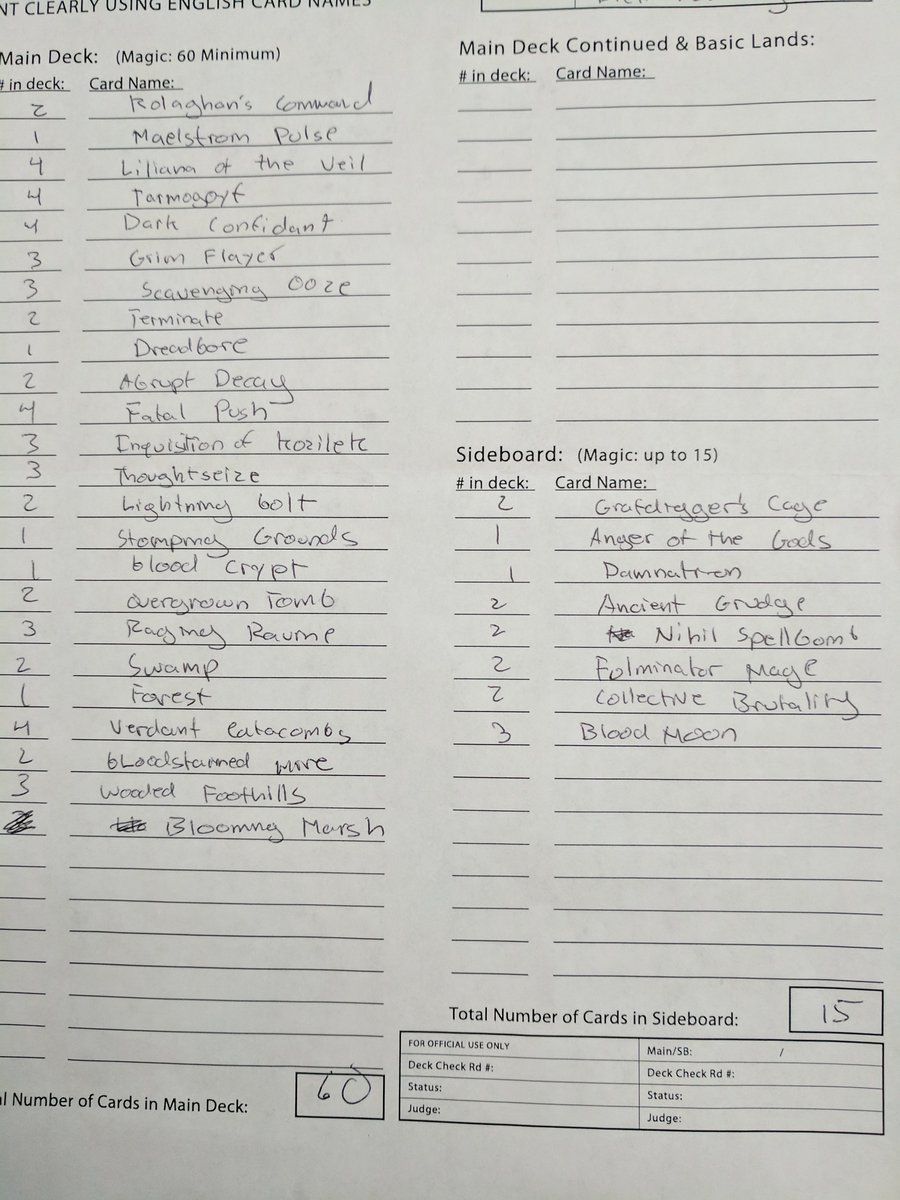 NT CLEARLY USING ENGLISH CARD NAMES
Main Deck: (Magic: 60 Minimum)
# in deck: Card Name:
2 Kolaghan's Command
1 Maelstrom Pulse
4 Liliana of the Veil
4 Tarmogoyf
4 Dark Confidant
3 Grim Flayer
3 Scavenging Ooze
2 Terminate
1 Dreadbore
2 Abrupt Decay
4 Fatal Push
3 Inquisition of Kozilek
3 Thoughtseize
2 Lightning bolt
1 Stomping Grounds
1 blood Crypt
2 overgrown Tomb
3 Raging Ravine
2 Swamp
1 Forest
4 Verdant Catacombs
2 bloodstained mire
3 Wooded Foothills
Blooming Marsh
l Number of Cards in Main Deck: 60
Main Deck Continued & Basic Lands:
# in deck: Card Name:
Sideboard: (Magic: up to 15)
# in deck: Card Name:
2 Grafdigger's Cage
1 Anger of the Gods
1 Damnation
2 Ancient Grudge
2 Nihil Spellbomb
2 Fulminator Mage
2 Collective Brutality
3 Blood Moon
Total Number of Cards in Sideboard: 15
FOR OFFICIAL USE ONLY
Deck Check Rd #:
Status:
Judge:
Main/SB: /
Deck Check Rd #:
Status:
Judge: